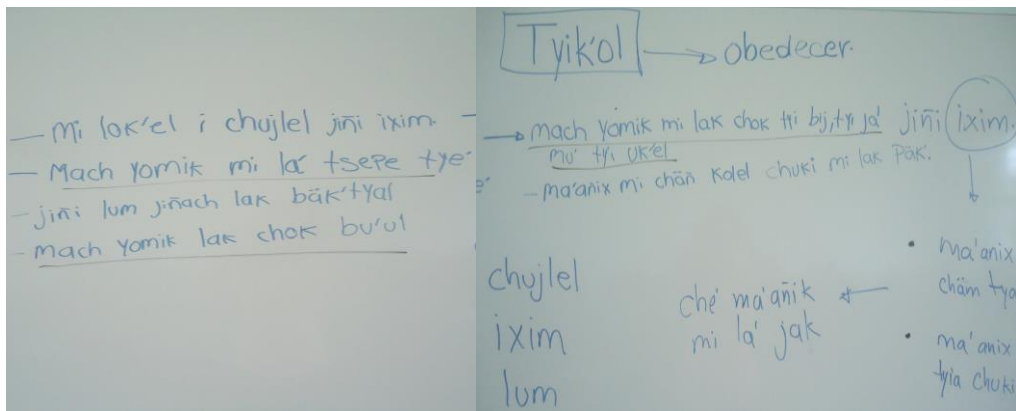 — Mi lok'el i chujlel jiñi ixim. —
— Mach yomik mi la' tsepe tye'
- jiñi lum jiñach lak bäk'tyal
- mach yomik lak chok bu'ul
Tyik'ol → obedecer.
→ mach yomik mi lak chok tyi bij, tyi ja' jiñi ixim.
mu' tyi uk'el
- ma'anix mi chän kolel chuki mi lak päk'.
chujlel
ixim
lum
che' ma'añik ←
mi la' jak
• ma'anix
chäm tya
• ma'anix
tyia chuki